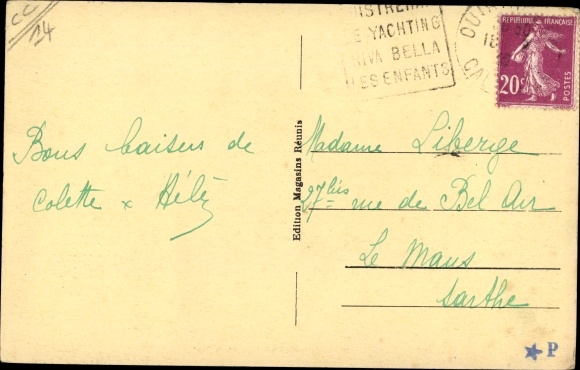 CC
14
ISTREHAM
E YACHTING
RIVA BELLA
DES ENFANTS
REPUBLIQUE FRANÇAISE
20c
POSTES
Bons baisers de
Colette x
Edition Magasins Réunis
Madame Liberge
27 bis rue de Bel Air
Le Mans
Sarthe
P